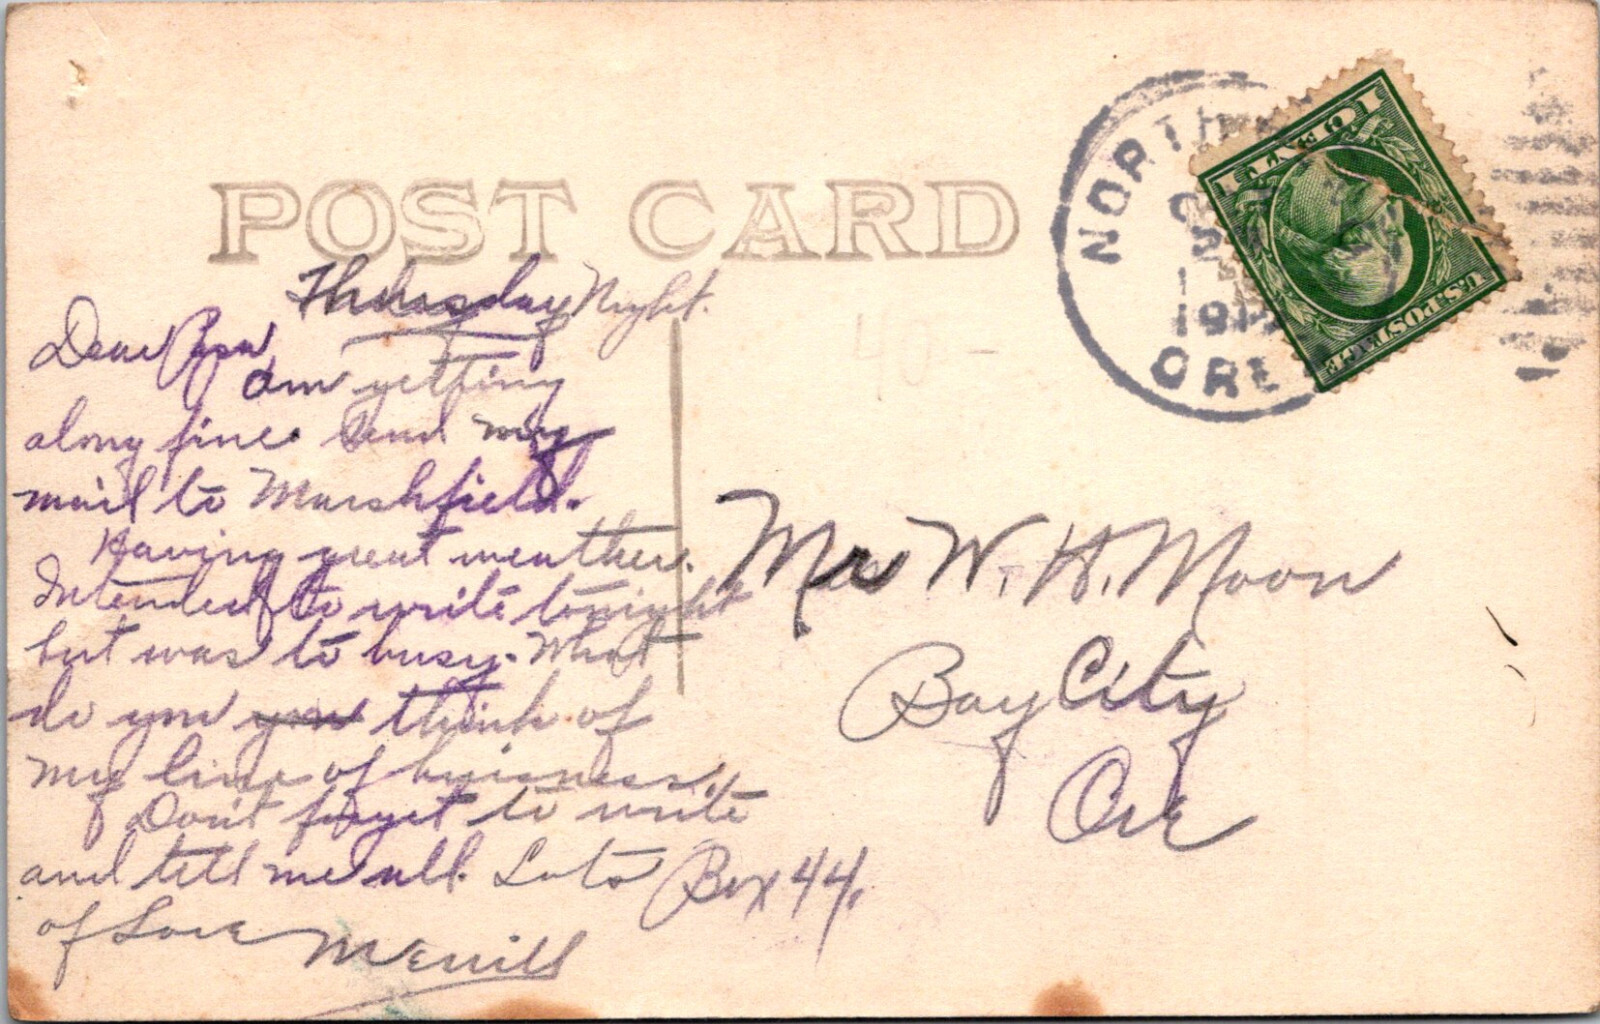 POST CARD
NORTH
191
ORE
1 CENT 1
U.S. POSTAGE
Thursday Night.
Dear Papa
Am getting
along fine. Send my
mail to Marshfield.
Having great weather.
Intended to write tonight
but was to busy. What
do you you think of
my line of buisness.
Don't forget to write
and tell me all. Lots
of Love Merrill
Box 44,
Mrs W. H. Moon
Bay City
Ore